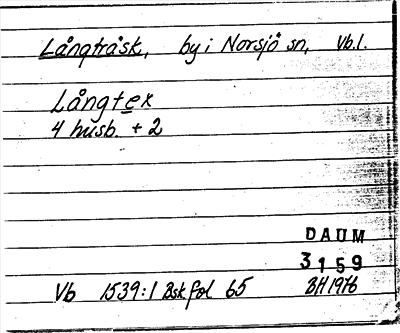 Långträsk, by i Norsjö sn, Vb.l.
Långtex
4 husb. + 2
DAUM
3159
Vb 1539:1 Bskfol 65 BH1976